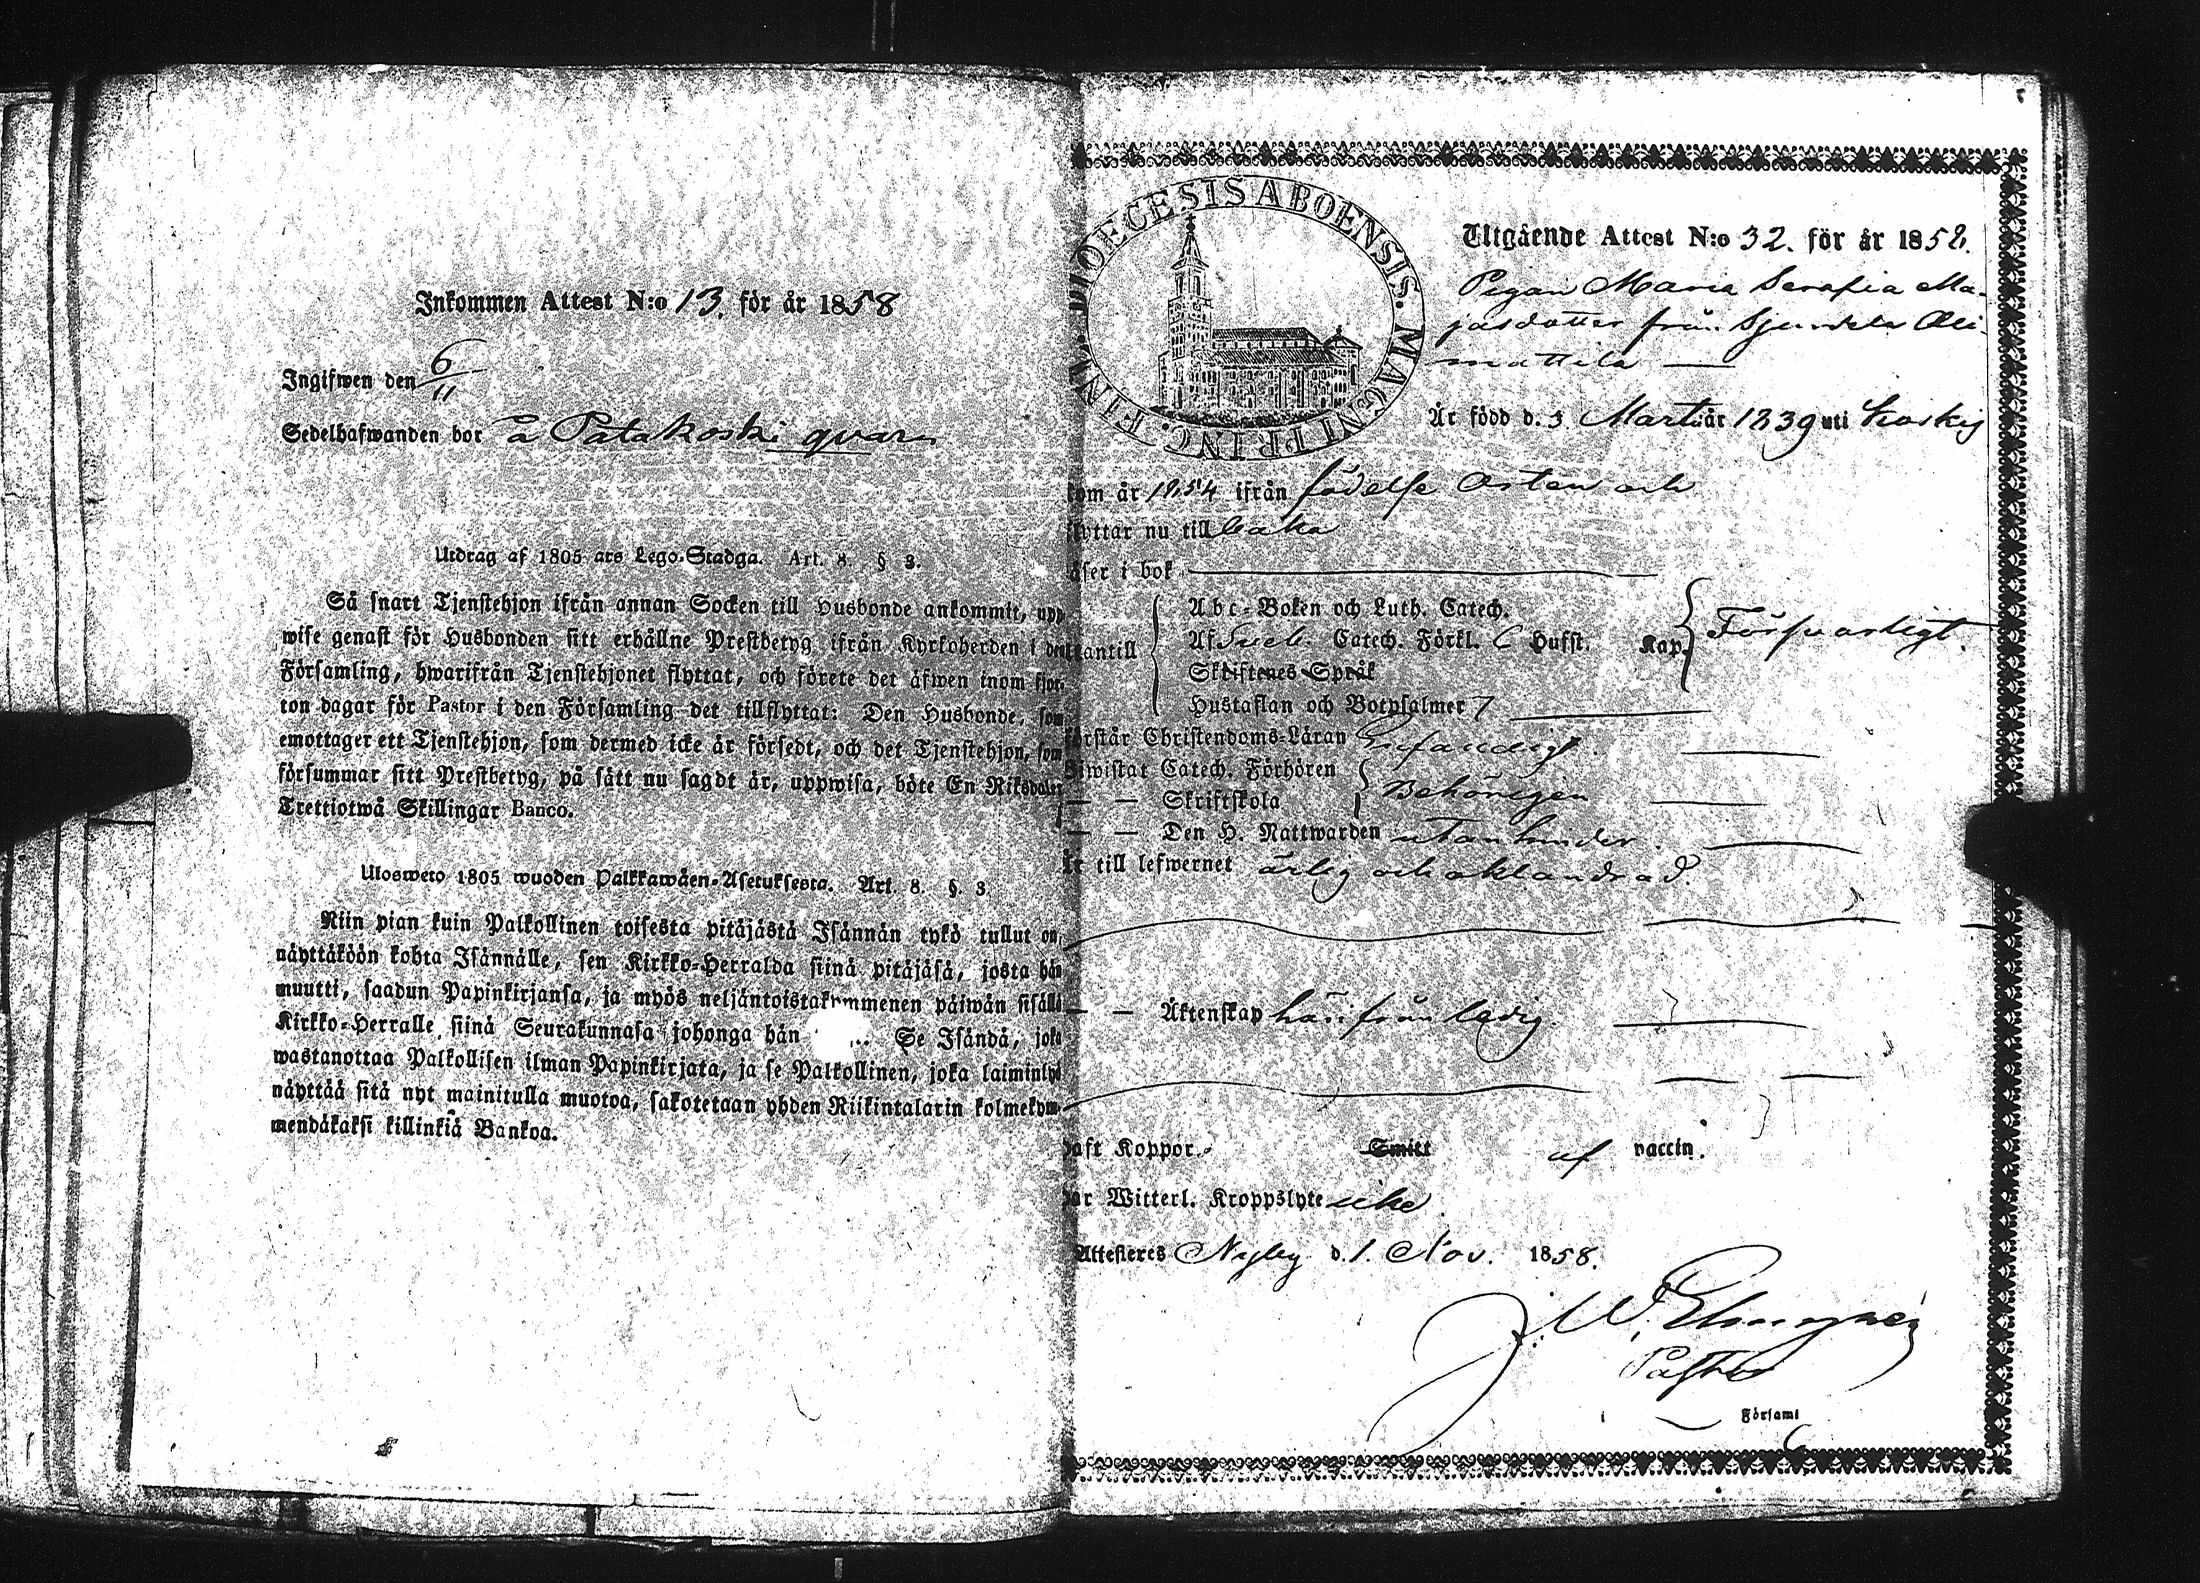 Inkommen Attest N:o 13. för år 1858
Ingifwen den 6/11
Sedelhafwanden bor å Patakoski qvarn
Utdrag af 1805 års Lego-Stadga. Art. 8. § 3.
Så snart Tjenstehjon ifrån annan Socken till Husbonde ankommit, upp
wise genast för Husbonden sitt erhållne Prestbetyg ifrån Kyrkoherden i den
Församling, hwarifrån Tjenstehjonet flyttat, och förete det äfwen inom fjor-
ton dagar för Pastor i den Församling det tillflyttat: Den Husbonde, som
emottager ett Tjenstehjon, som dermed icke är försedt, och det Tjenstehjon, som
försummar sitt Prestbetyg, på sätt nu sagdt är, uppwisa, böte En Riksdaler
Trettiotwå Skillingar Banco.
Ulosweto 1805 wuoden Palkkawäen-Asetuksesta. Art. 8. §. 3.
Niin pian kuin Palkollinen toisesta pitäjästä Isännän tykö tullut on,
näyttäköön kohta Isännälle, sen Kirkko-Herralda siinä pitäjäsä, josta hän
muutti, saadun Papinkirjansa, ja myös neljäntoistakymmenen päiwän sisällä
Kirkko-Herralle siinä Seurakunnasa johonga hän ... Se Isändä, joka
wastanottaa Palkollisen ilman Papinkirjata, ja se Palkollinen, joka laiminlyö
näyttää sitä nyt mainitulla muotoa, sakotetaan yhden Riikintalarin kolmekym-
mendäkaksi killinkiä Bankoa.
DIOECESIS ABOENSIS. MAGNI PRINC. FINL.
Utgående Attest N:o 32. för år 1858.
Pigan Maria Serafia Ma-
jasdotter från Sjundela Ali-
mattila
Är född d. 3 Martii år 1839 uti Koskis
kom år 1854 ifrån födelse Orten och
flyttar nu till baka
läser i bok
Abc-Boken och Luth. Catech.
utantill Af Sueb. Catech. Förkl. C Hufst. Kap. Försvarligt.
Skriftenes Språk
Hustaflan och Botpsalmer 7
förstår Christendoms-Läran Enfaldigt.
Biwistat Catech. Förhören
— — Skriftskola Behörigen
— — Den H. Nattwarden utan hinder.
Är till lefwernet ärlig och oklandrad.
— — Äktenskap härifrån ledig.
haft Koppor. Smitt af vaccin.
har Witterl. Kroppslyte icke.
Attesteres Nyby d. 1. Nov. 1858.
J. W. 
Pastor
Församl